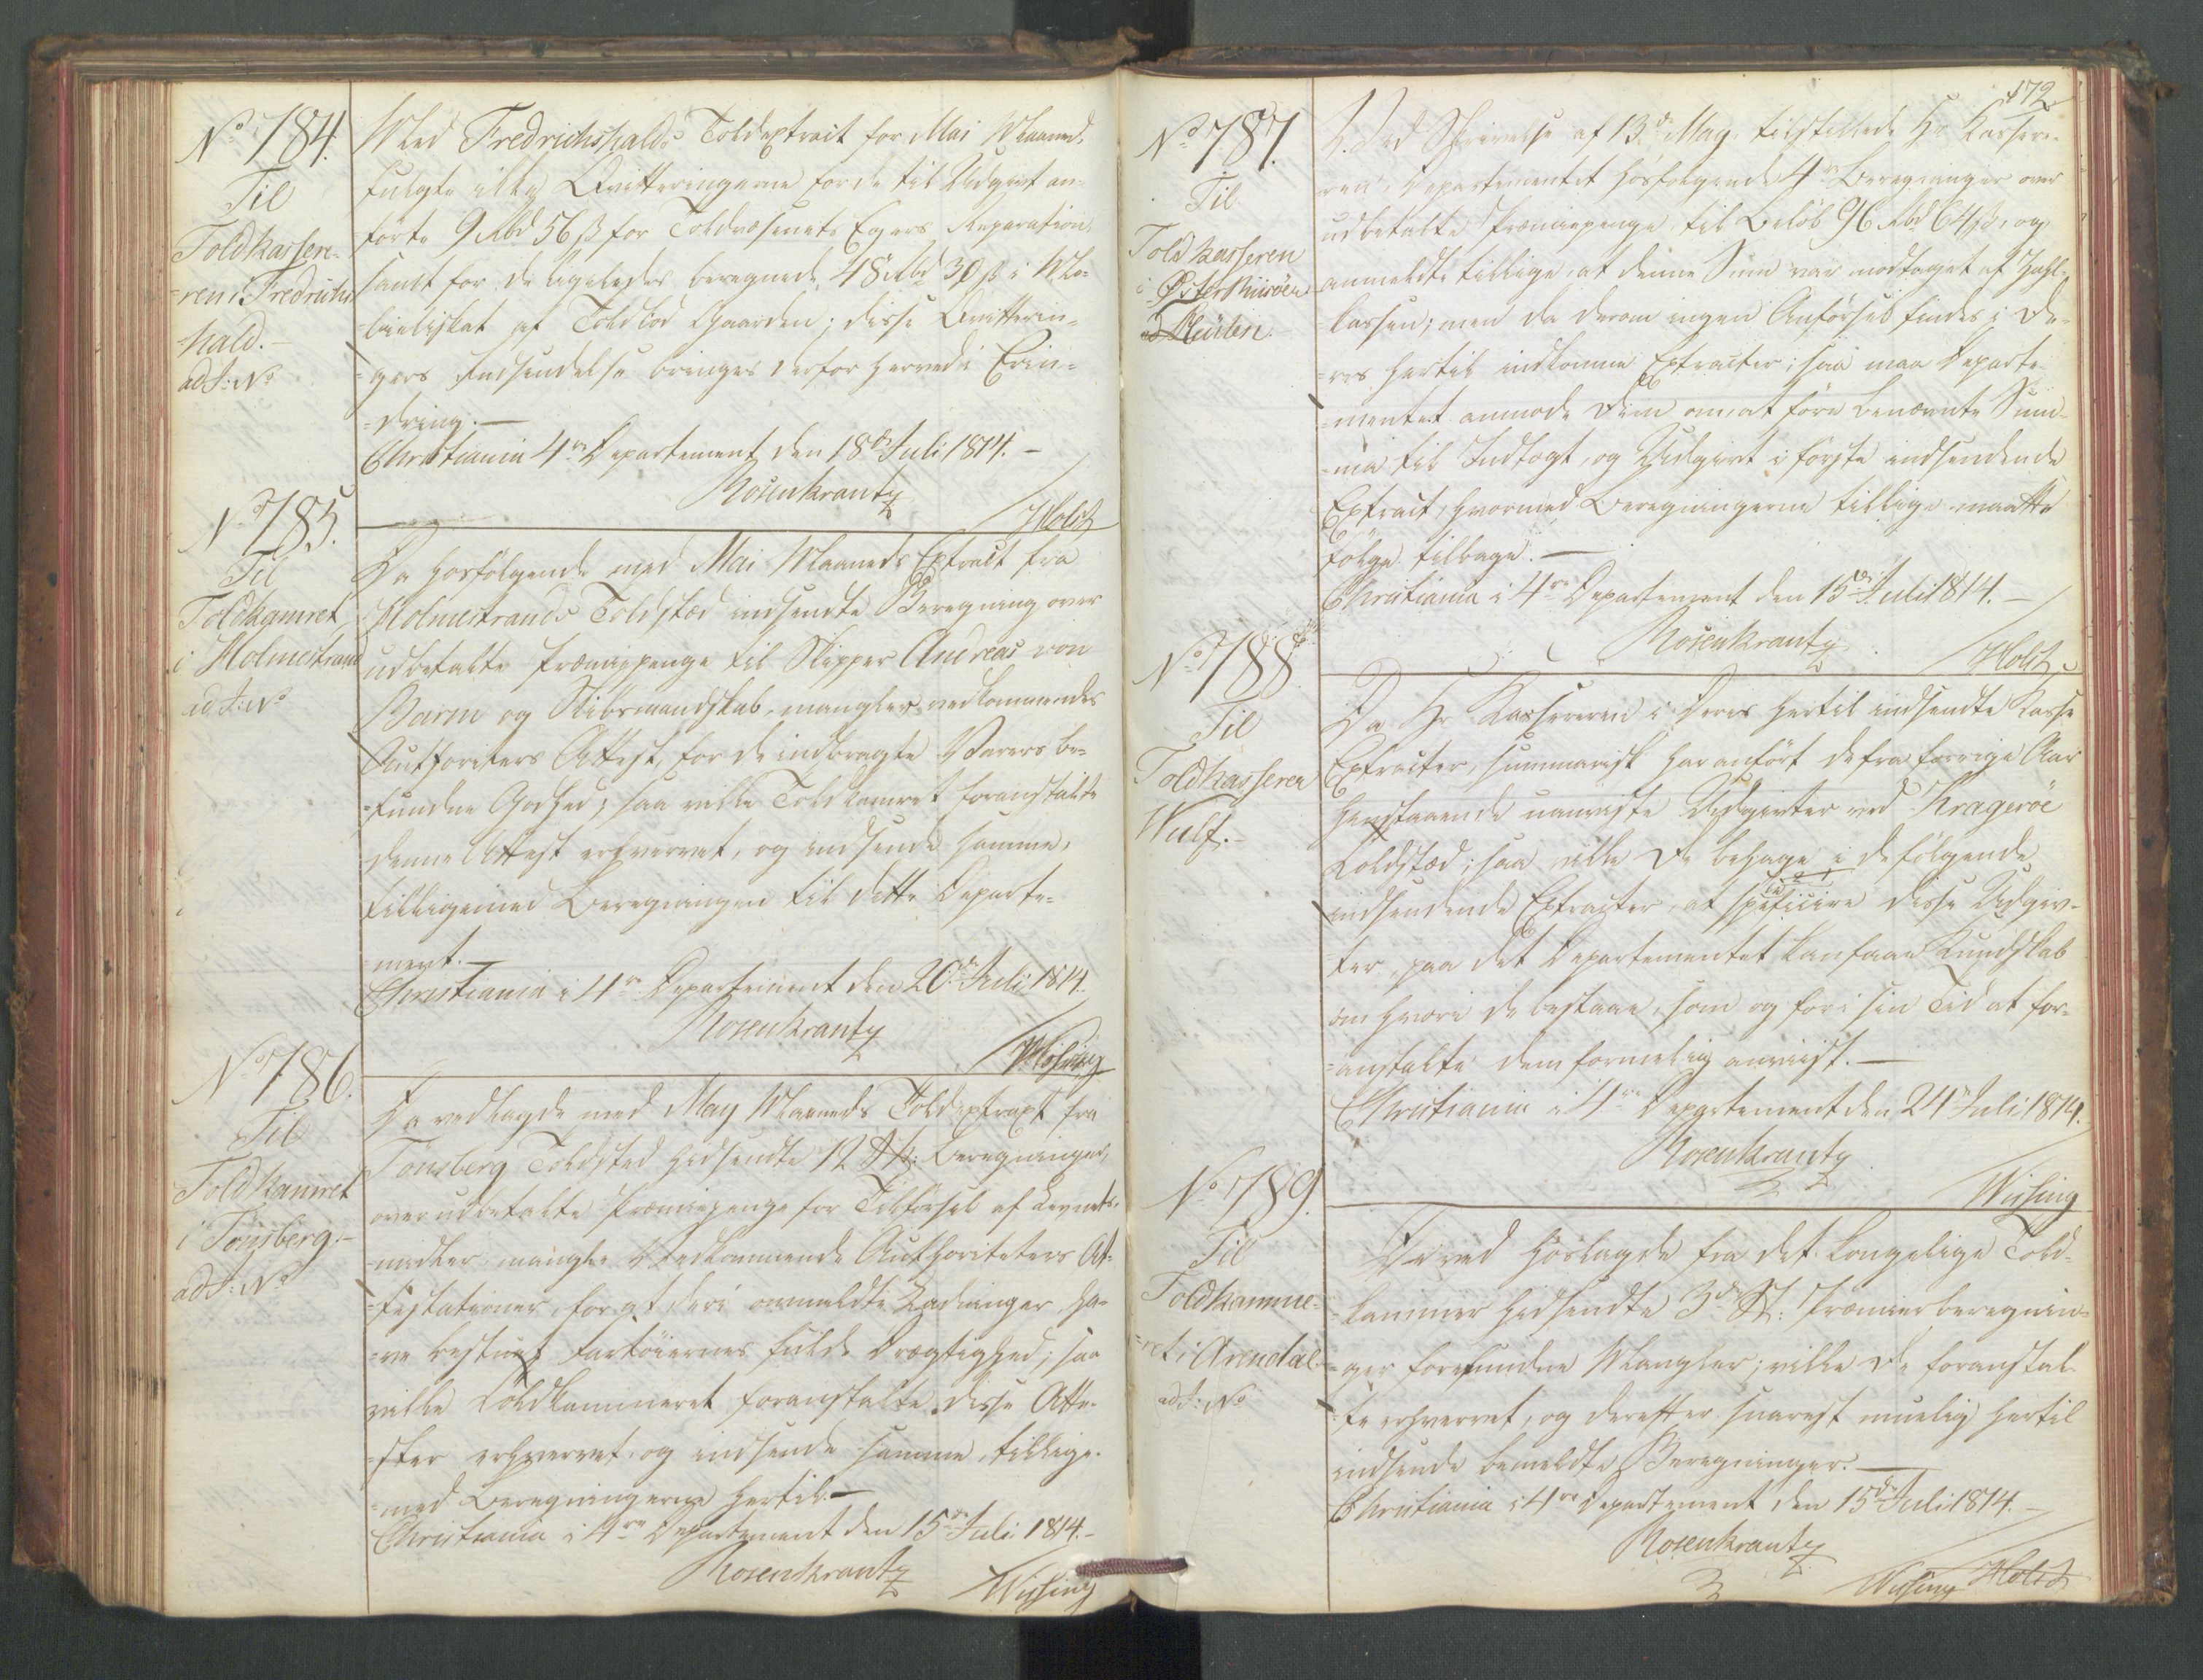 No 784.
Til
Toldkassere-
-ren i Fredrichs
hald.-
ad J: No
Med Fredrichshalds Toldextract for Mai Maaned,
fulgte ikke Qvitteringerne for de til Udgivt an-
førte 9 Rbd 56 ß for Toldvæsenets Eqers Reparation
samt for de ligeledes beregnede 48 Rbd 30 ß i
af Toldbod Gaarden; disse Qvitterin-
-gers Indsendelse bringes derfor herved i Erin-
-dring.-
Christiania 4de Departement den 18de Juli 1814.-
Rosenkrantz
/Holst
No 785.
Til
Toldkamret
i Holmestrand
ad J: No
Da hosfølgende med Mai Maaneds Extract fra
Holmestrands Toldsted indsendte Beregning over
udbetalte Præmiepenge til Skipper Andreas von
Barm og Skibsmandskab, mangler vedkommendes
Authoriters Attest, for de indbragte Varers be-
-fundne Godhed; saa ville Toldkamret foranstalte
denne Attest erhvervet, og indsende samme,
tilligemed Beregningen til dette Departe-
-ment.-
Christiania i 4de Departement den 20de Juli 1814.
Rosenkrantz
/Wissing
No 786.
Til
Toldkamret
i Tønsberg.-
ad J: No
Da vedlagde med May Maaneds Toldextract fra
Tonsberg Toldsted hidsendte 12 Stk: Beregninger,
over udbetalte Præmiepenge for Tilførsel af Levnets-
-midler mangler Vedkommende Authoriteters At-
-testationer, for at deri anmeldte Ladninger ha-
-ve bestuet Fartøiernes fulde Drægtighed; saa
ville Toldkammeret foranstalte disse Atte-
-ster erhvervet, og indsende samme, tillige-
-med Beregningerne hertil.-
Christiania i 4de Departement den 15de Juli 1814.-
Rosenkrantz
/Wissing
172
No 787.
Til
Toldkasseren
i Østerriisöer
Ved Skrivelse af 13de May, tilstillede Hr Kassere-
ren, Departementet hosfølgende 4re Beregninger over
udbetalte Præmiepenge til Beløb 96 Rbd 64 ß, og
anmeldte tillige, at denne Sum var modtaget af Zahl-
kassen; men da derom ingen Anførsel findes i De-
-res hertil indkomne Extracter; saa maa Departe-
-mentet anmode Dem om, at føre benævnte Sum-
-ma til Indtægt, og Udgivt i første indsendende
Extract, hvormed Beregningerne tillige maatte
følge tilbage.-
Christiania i 4de Departement den 15de Juli 1814.-
Rosenkrantz
/Holst
No 788
Til
Toldkasseren
Wulf.-
Da Hr Kassereren i Deres hertil indsendte Kasse
Extracter, summarisk har anført de fra forrige Aar
henstaaende uanviste Udgivter ved Kragerøe
Toldsted; saa ville De behage i de følgende
indsendende Extracter, at specificere disse Udgiv-
-ter, paa det Departementet kan faae Kundskab
om hvori de bestaae, som og for i sin Tid at for-
-anstalte dem formelig anviist.-
Christiania i 4de Departement den 24de Juli 1814.
Rosenkrantz
/Wissing
No 789.
Til
Toldkamme-
-ret i Arendal
ad J: No
De ved hoslagde fra det kongelige Told-
-kammer hidsendte 3de St: Præmieberegnin-
-ger forefundne Mangler; ville De foranstal-
-te erhvervet, og derefter snarest muelig hertil
indsende bemeldte Beregninger.-
Christiania i 4de Departement den 15de Juli 1814.-
Rosenkrantz
/Wissing /Holst